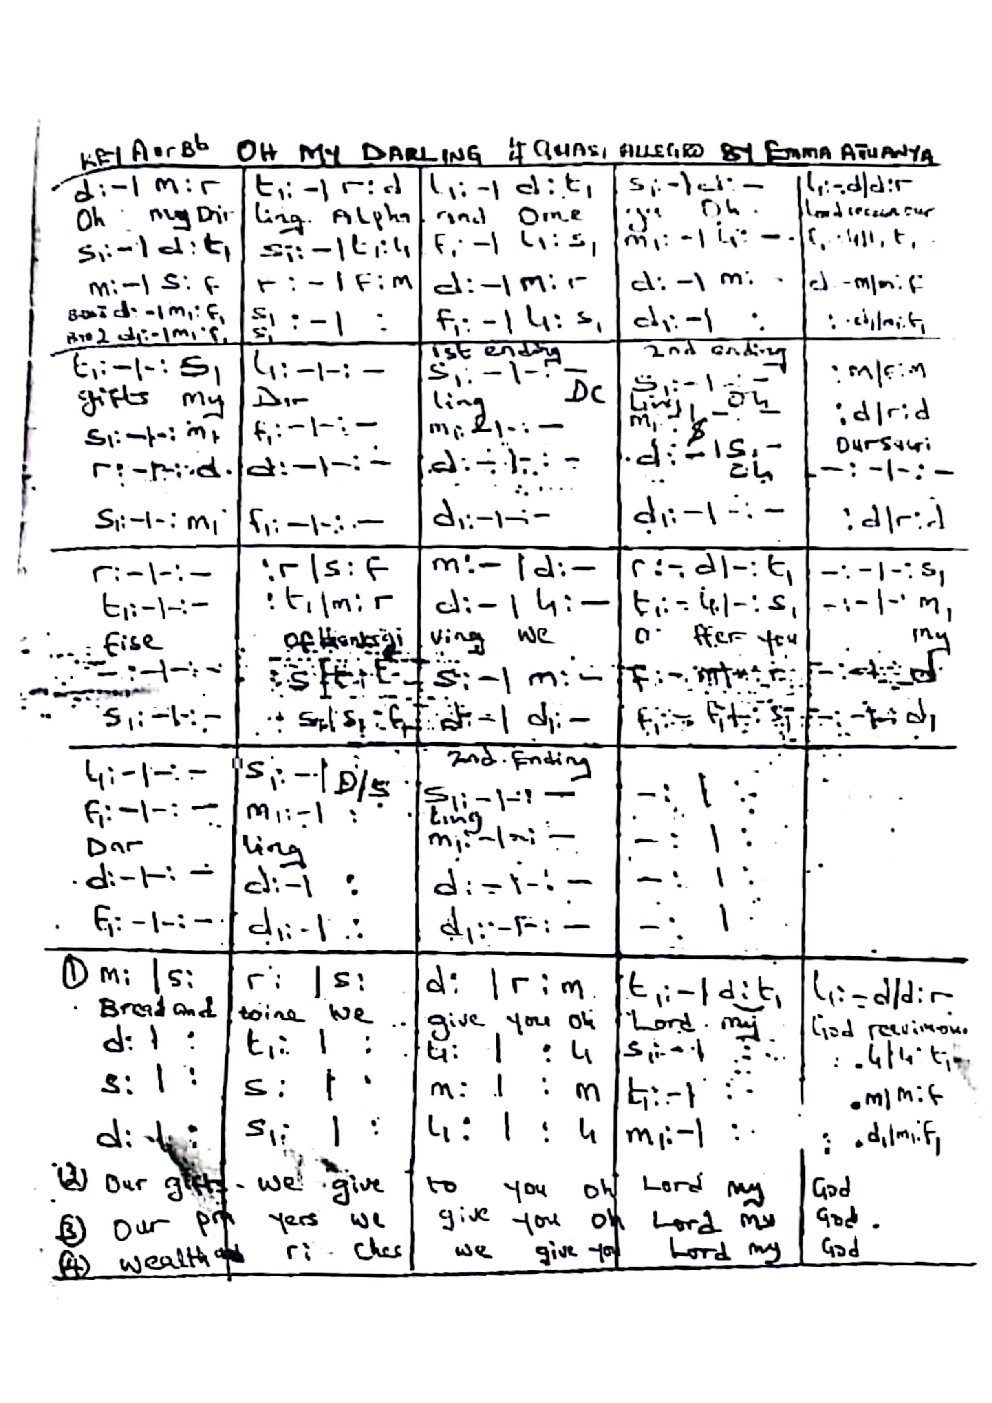 KEY A or Bb OH MY DARLING 4/4 QUASI ALLEGRO BY EMMA ATUANYA
d:-| m:r t₁:-| r:d l₁:-| d:t₁ s₁:-| d:- l₁:-d/d:r
Oh my Dar ling Alpha and Ome ga Oh Lord receive our
s₁:-| d:t₁ s₁:-| t₁:l₁ f₁:-| l₁:s₁ m₁:-| l₁:-
m:-| s:f r:-| f:m d:-| m:r d:-| m: d -m/m:f
d:-| m₁:f₁ s₁:-| : f₁:-| l₁:s₁ d₁:-| : : -d₁/m₁:f₁
1st ending 2nd ending
t₁:-|-:s₁ l₁:-|-:- s₁:-|-:- DC s₁:-|-:- :m/f:m
gifts my Dar ling ling Oh :d/r:d
s₁:-|-:m₁ f₁:-|-:- m₁:-|-:- Our sacri
r:-|-:d d:-|-:- d:-|-:- d:-|s₁:- -:-|-:-
Oh
s₁:-|-:m₁ f₁:-|-:- d₁:-|-:- d₁:-|-:- :d/r:d
r:-|-:- :r|s:f m:-|d:- r:-d|-:t₁ -:-|-:s₁
t₁:-|-:- :t₁|m:r d:-|l₁:- t₁:-l₁|-:s₁ -:-|-:m₁
fise of thanksgi ving we o ffer you my
-:-|-:- s:-|m:- d
s₁:-|-:- d:-|d₁:- d₁
2nd Ending
l₁:-|-:- s₁:-| D/S s₁:-|-:- -: | :
f₁:-|-:- m₁:-| : ling
Dar ling m₁:-|-:- -: | :
d:-|-:- d:-| : d:-|-:- -: | :
f₁:-|-:- d₁:-| : d₁:-|-:- -: |
① m: |s: r: |s: d: |r:m t₁:-|d:t₁ l₁:-d/d:r
Bread and wine we give you oh Lord my God receive our
d: | : t₁: | : l₁: | :l₁ s₁:-| : :.l₁/l₁:t₁
s: | : s: | : m: | :m t₁:-| : .m/m:f
d: | : s₁: | : l₁: | :l₁ m₁:-| : :.d₁/m₁:f₁
② Our gifts - we give to you oh Lord my God
③ Our pra yers we give you oh Lord my God.
④ Wealth and ri ches we give you Lord my God